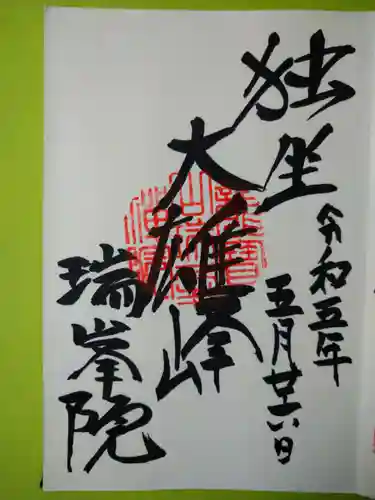 独坐
大雄峰
瑞峯院
令和五年
五月廿八日